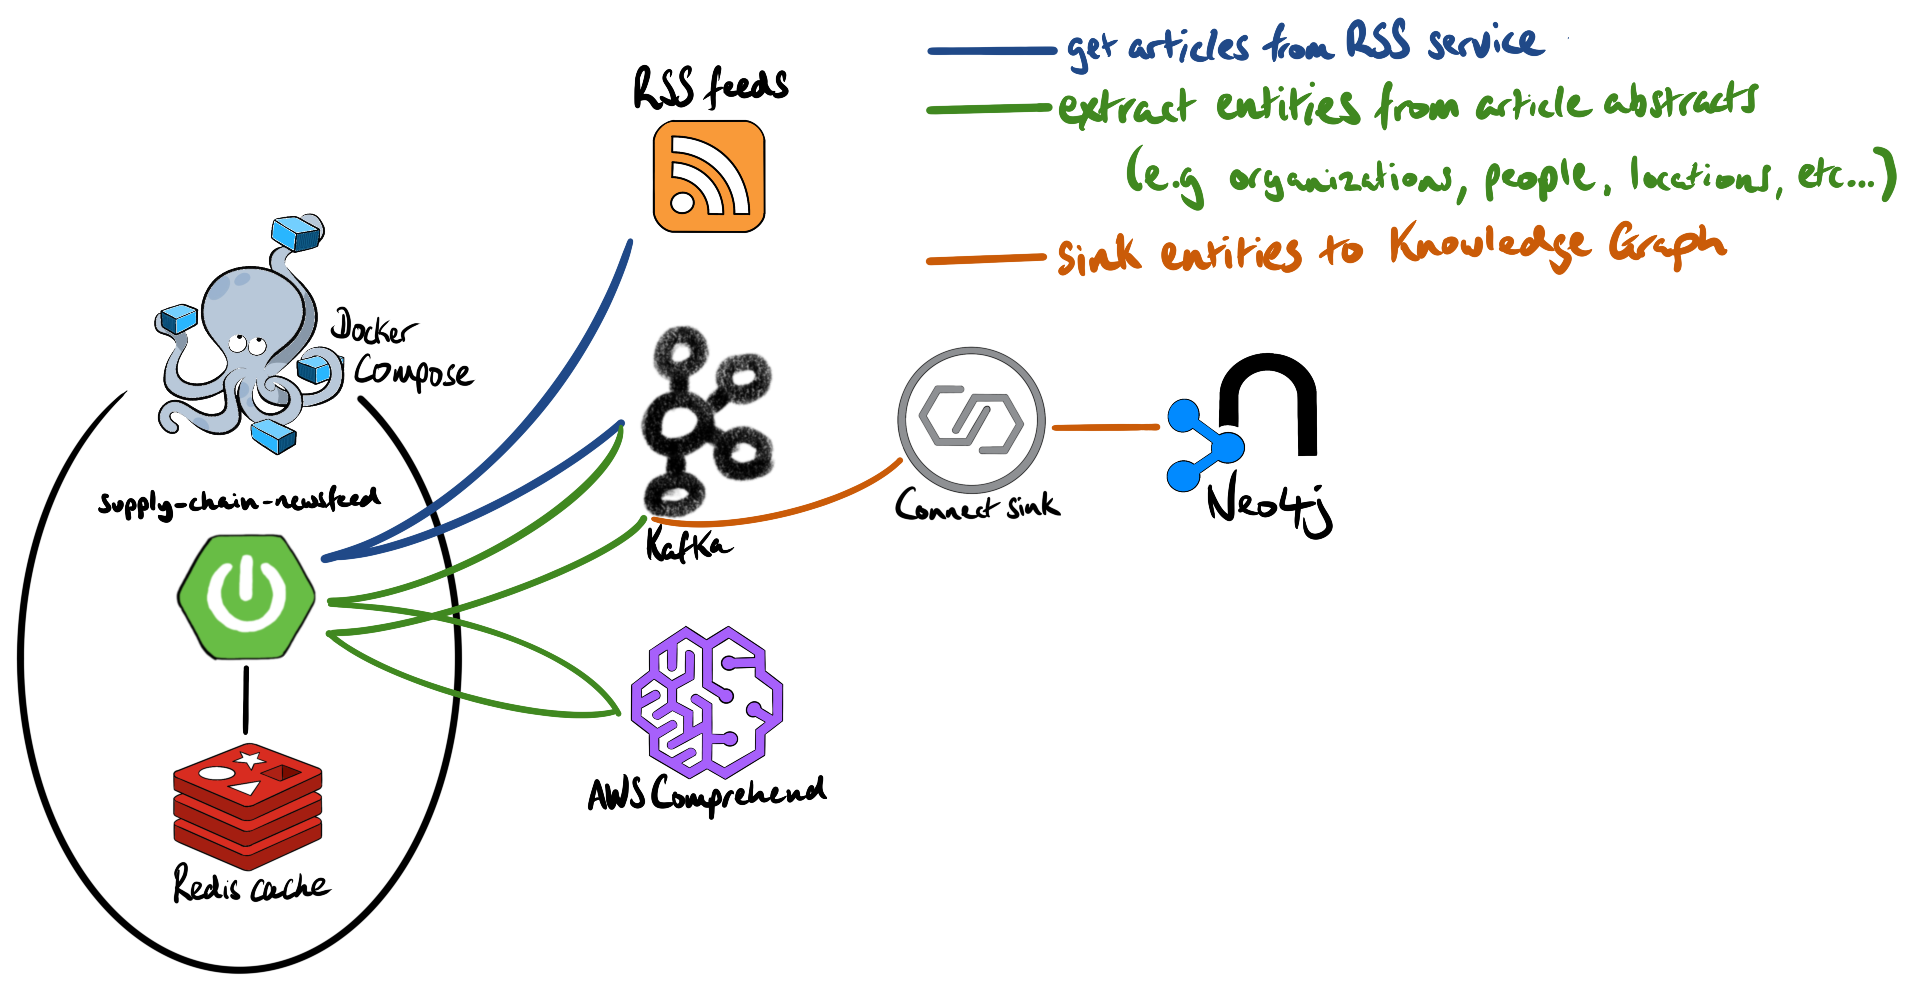 get articles from RSS service
extract entities from article abstracts
(e.g organizations, people, locations, etc...)
sink entities to Knowledge Graph
RSS feeds
Docker
Compose
supply-chain-newsfeed
Redis cache
Kafka
AWS Comprehend
Connect sink
Neo4j